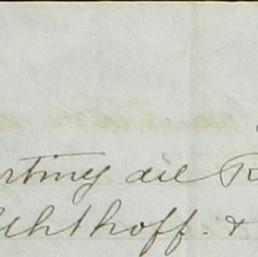 rting all R
Uhthoff. &